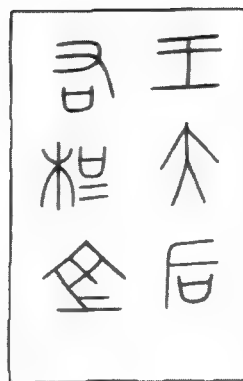 王大后
右相室